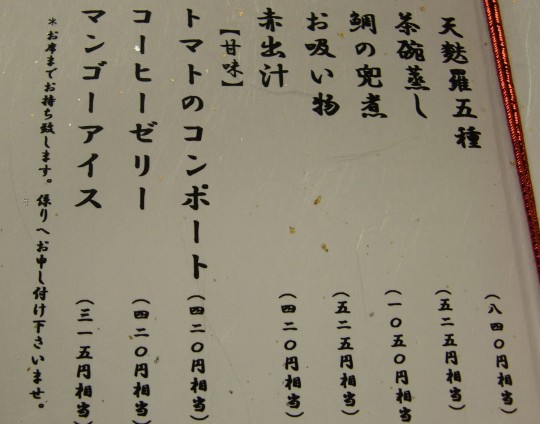 天麩羅五種 (八四〇円相当)
茶碗蒸し (五二五円相当)
鯛の兜煮 (一〇五〇円相当)
お吸い物 (五二五円相当)
赤出汁 (四二〇円相当)
【甘味】
トマトのコンポート (四二〇円相当)
コーヒーゼリー (四二〇円相当)
マンゴーアイス (三一五円相当)
＊お席までお持ち致します。係りへお申し付け下さいませ。